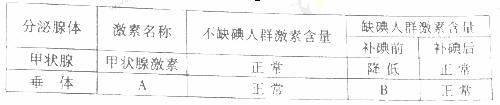 分泌腺体 激素名称 不缺碘人群激素含量 缺碘人群激素含量
补碘前 补碘后
甲状腺 甲状腺激素 正常 降低 正常
垂体 A 正常 B 正常